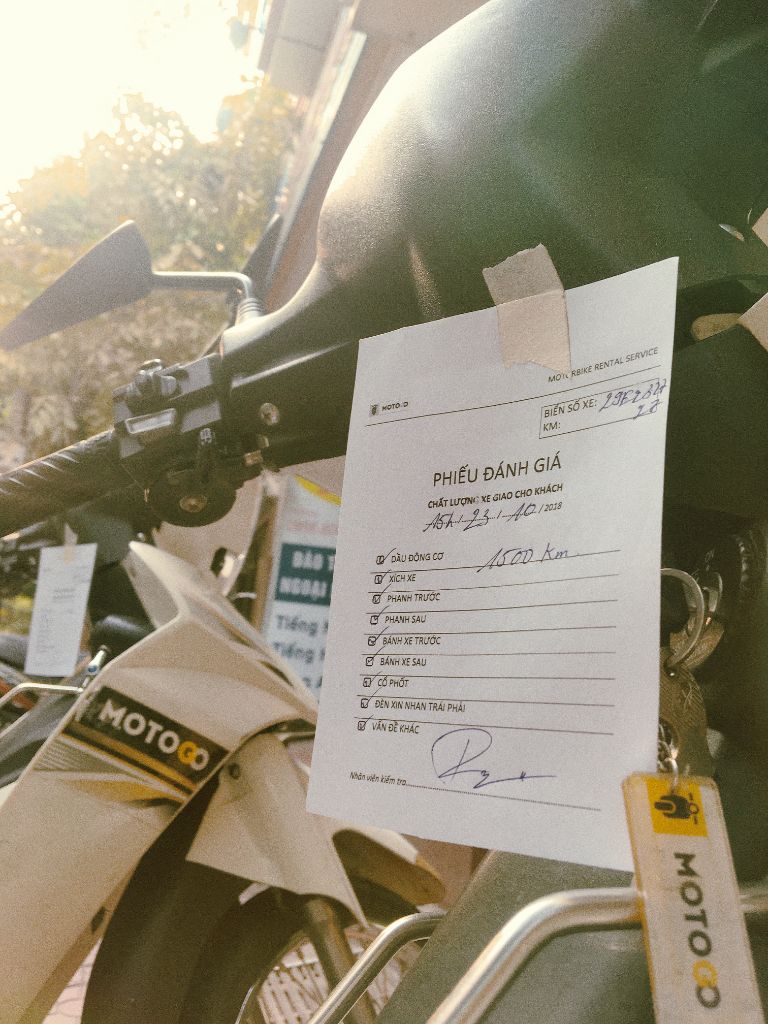 MOTOGO
MOTORBIKE RENTAL SERVICE
BIỂN SỐ XE:
KM: 27
PHIẾU ĐÁNH GIÁ
CHẤT LƯỢNG XE GIAO CHO KHÁCH
15h / 23 / 10 / 2018
DẦU ĐỘNG CƠ 1500 Km
XÍCH XE
PHANH TRƯỚC
PHANH SAU
BÁNH XE TRƯỚC
BÁNH XE SAU
CỔ PHỐT
ĐÈN XIN NHAN TRÁI PHẢI
VẤN ĐỀ KHÁC
Nhân viên kiểm tra
MOTOGO
MOTOGO
NGOẠI
Tiếng
Tiếng